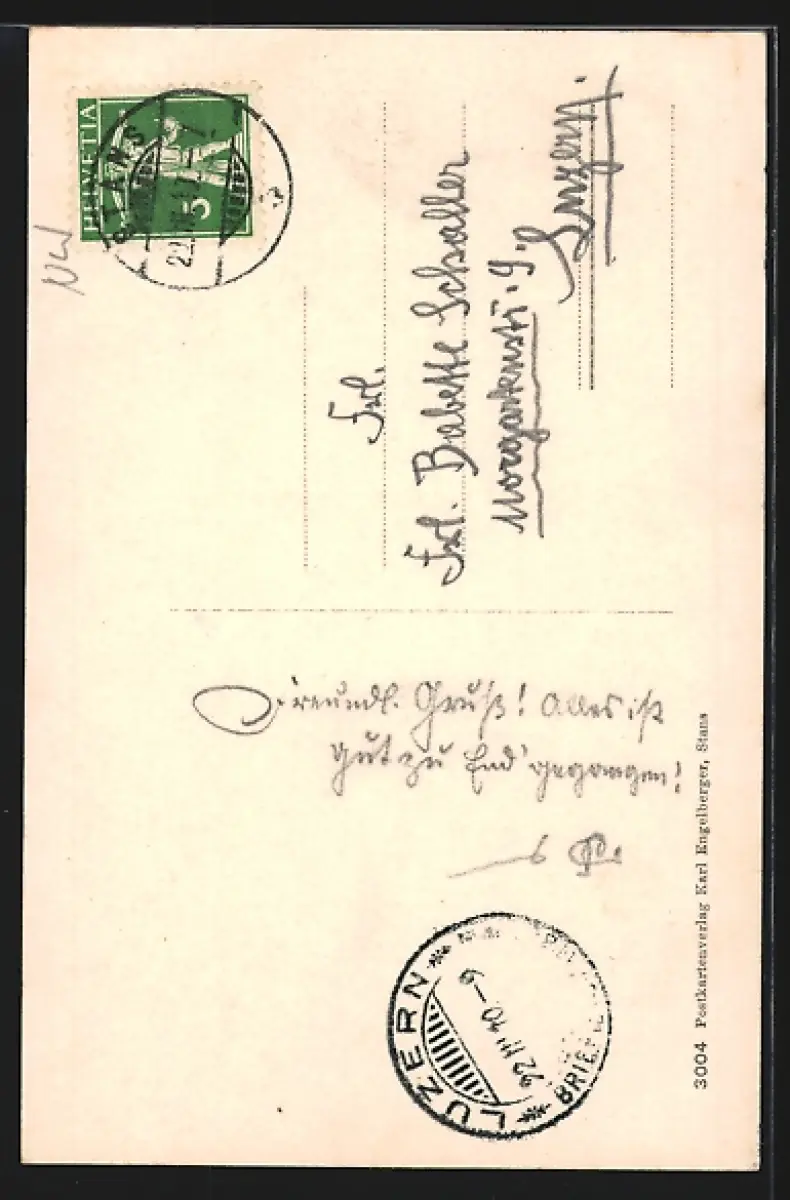 HELVETIA
5
STANS
NW
Frl.
Frl. Babette Schaller
Morgartenstr. 9.
Luzern.
Freundl. Gruß! Alles ist
gut zu End' gegangen!
LUZERN
BRIEF
3004 Postkartenverlag Karl Engelberger, Stans